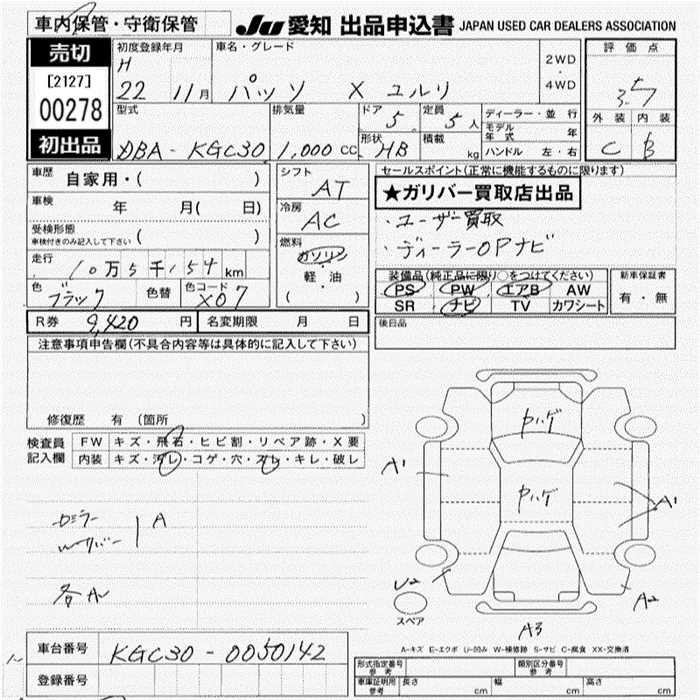 車内保管・守衛保管
JU 愛知 出品申込書 JAPAN USED CAR DEALERS ASSOCIATION
売切
[2127]
00278
初出品
初度登録年月
H
22 11月
車名・グレード
パッソ X ユルリ
2WD
・
4WD
評価点
3.5
外装 内装
C B
型式
DBA-KGC30
排気量
1,000 CC
ドア 5
形状 HB
定員 5人
積載 kg
ディーラー・並行
モデル年式 年
ハンドル 左・右
車歴 自家用・( )
車検 年 月( 日)
受検形態
車検付きのみ記入して下さい ( )
走行 10万5千154km
色 ブラック 色替 色コード X07
シフト AT
冷房 AC
燃料
ガソリン
軽・油
( )
R券 9,420円 名変期限 月 日
セールスポイント(正常に機能するものに限ります)
★ガリバー買取店出品
・ユーザー買取
・ディーラーOPナビ
装備品(純正品に限り○をつけてください)
PS PW エアB AW
SR ナビ TV カワシート
新車保証書
有・無
後日品
注意事項申告欄(不具合内容等は具体的に記入して下さい)
修復歴 有 (箇所 )
検査員記入欄
FW キズ・飛石・ヒビ割・リペア跡・X要
内装 キズ・汚レ・コゲ・穴・スレ・キレ・破レ
A
各A
A1
A1
U2
A2
A3
スペア
A-キズ E-エクボ U-凹み W-補修跡 S-サビ C-腐食 XX-交換済
車台番号 KGC30-0050142
登録番号
形式指定番号 参考
類別区分番号 参考
車庫証明用 参考 長さ cm 幅 cm 高さ cm